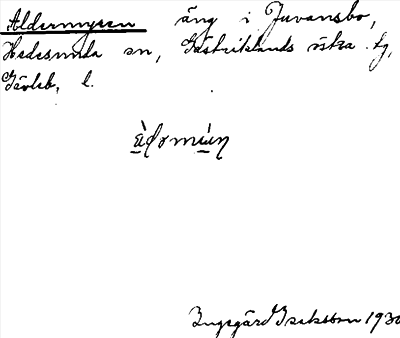 Aldermyren äng i Juvansbo,
Hedesunda sn, Gästriklands östra tg,
Gävleb. l.
àdərmų̀n
Ingegärd Isaksson 1930